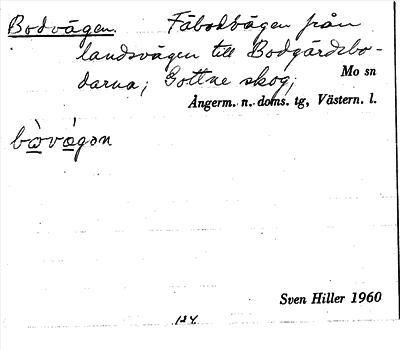 Bodvägen. Fäbodvägen från
landsvägen till Bodgärdsbo-
darna; Gottne skog;
Mo sn
Ångerm. n. doms. tg, Västern. l.
bo̲̊̀vǻ̲gən
Sven Hiller 1960
124